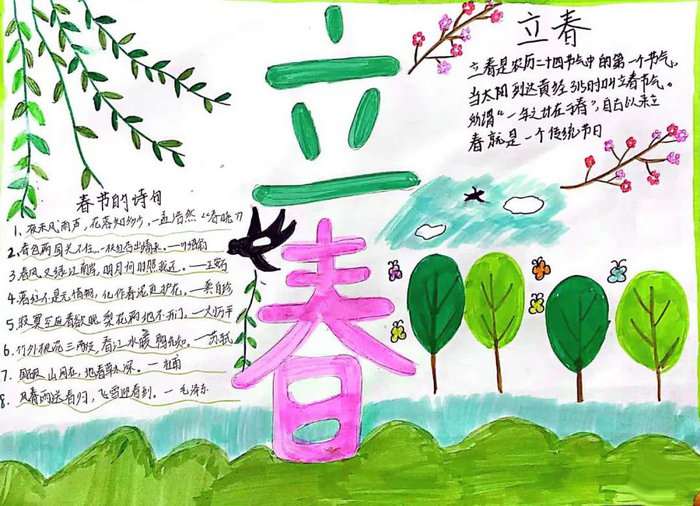 立春
立春
立春是农历二十四节气中的第一个节气,
当太阳到达黄经315时叫立春节气。
所谓“一年之计在于春”,自古以来立
春就是一个传统节日
春节的诗句
1、夜来风雨声,花落知多少,一孟浩然《春晓》
2、春色满园关不住、一枝红杏出墙来。—叶绍翁
3、春风又绿江南岸,明月何时照我还。—王安石
4、落红不是无情物,化作春泥更护花,—龚自珍
5、寂寞空庭春欲晚 梨花满地不开门。—刘方平
6、竹外桃花三两枝,春江水暖鸭先知。—苏轼
7、国破山河在,城春草木深。—杜甫
8、风雨送春归,飞雪迎春到。—毛泽东